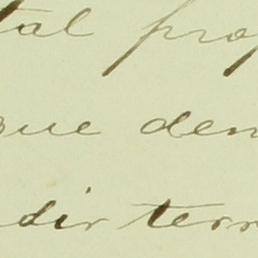 tal prop
que den
dir terr